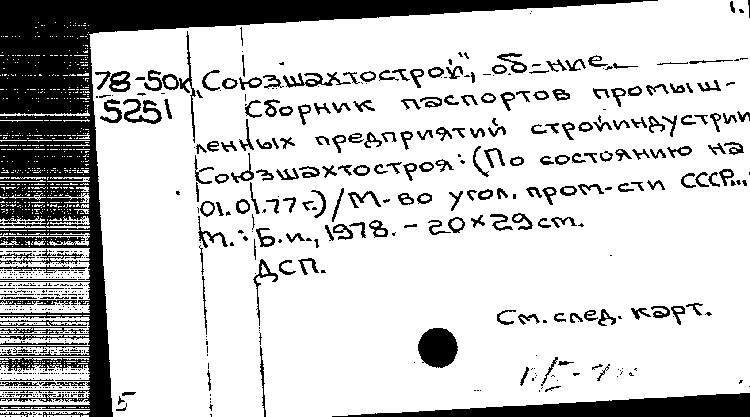 1.
78-50к „Союзшахтострой", об-ние.
5251 Сборник паспортов промыш-
ленных предприятий стройиндустрии
Союзшахтостроя: (По состоянию на
01.01.77 г.) / М-во угол. пром-сти СССР...
М.: Б.и., 1978. - 20×29 cm.
ДСП.
См. след. карт.
5